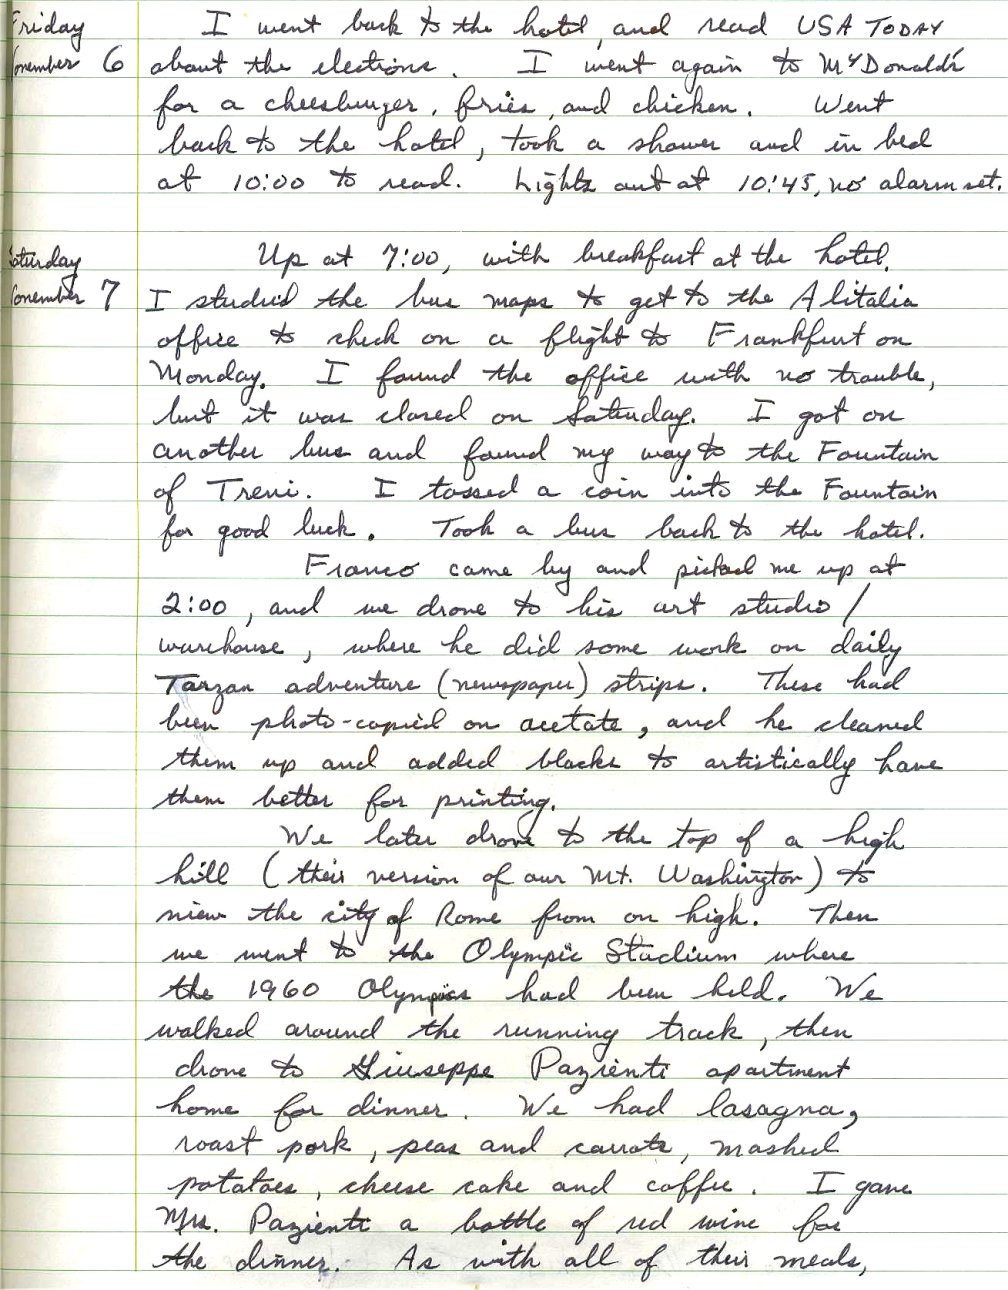 Friday I went back to the hotel, and read USA TODAY
November 6 about the elections. I went again to McDonald's
for a cheesburger, fries, and chicken. Went
back to the hotel, took a shower and in bed
at 10:00 to read. Lights out at 10:45, no alarm set.
Saturday Up at 7:00, with breakfast at the hotel.
November 7 I studied the bus maps to get to the Alitalia
office to check on a flight to Frankfurt on
Monday. I found the office with no trouble,
but it was closed on Saturday. I got on
another bus and found my way to the Fountain
of Trevi. I tossed a coin into the Fountain
for good luck. Took a bus back to the hotel.
Franco came by and picked me up at
2:00, and we drove to his art studio/
warehouse, where he did some work on daily
Tarzan adventure (newspaper) strips. These had
been photo-copied on acetate, and he cleaned
them up and added blacks to artistically have
them better for printing.
We later drove to the top of a high
hill (their version of our Mt. Washington) to
view the city of Rome from on high. Then
we went to the Olympic Stadium where
the 1960 Olympics had been held. We
walked around the running track, then
drove to Giuseppe Pazienti apartment
home for dinner. We had lasagna,
roast pork, peas and carrots, mashed
potatoes, cheese cake and coffee. I gave
Mrs. Pazienti a bottle of red wine for
the dinner. As with all of their meals,